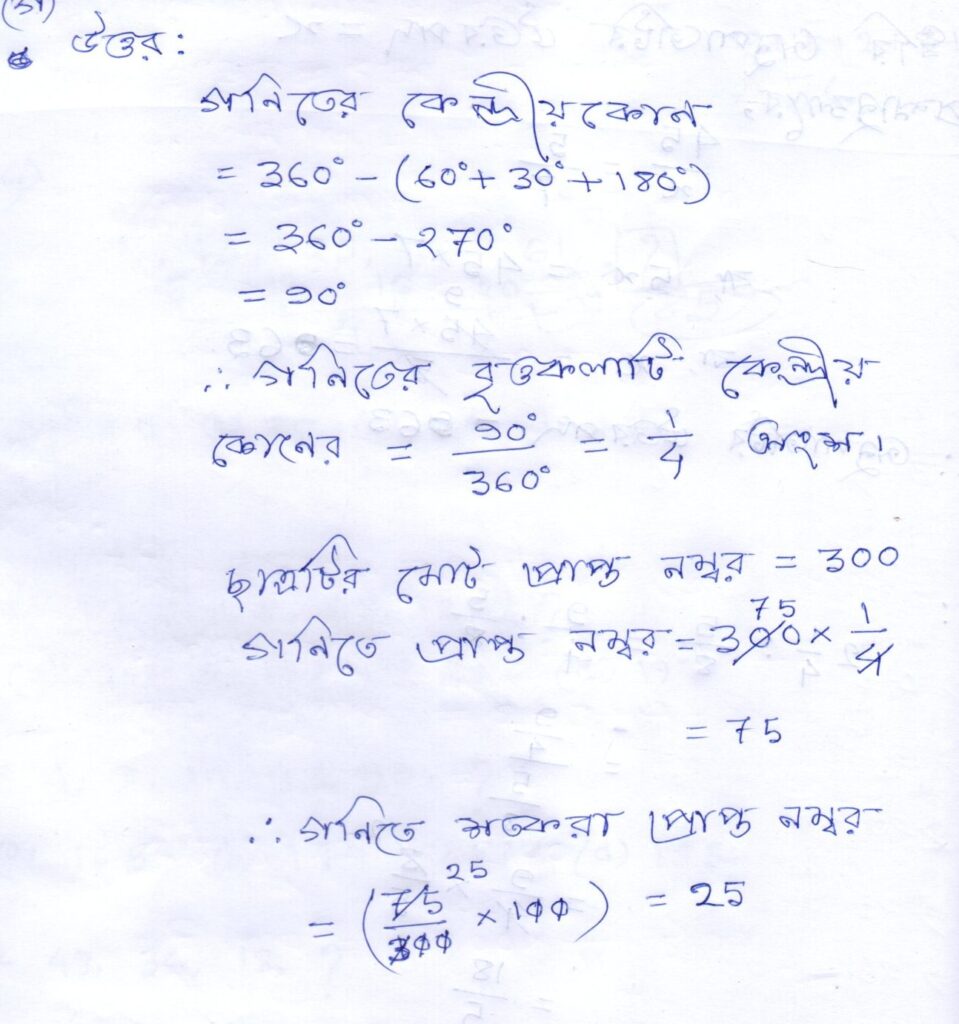 (গ)
উত্তর:
গনিতের কেন্দ্রীয়কোন
= 360° - (60° + 30° + 180°)
= 360° - 270°
= 90°
∴ গনিতের বৃত্তকলাটি কেন্দ্রীয়
কোনের = 90°/360° = 1/4 অংশ।
ছাত্রটির মোট প্রাপ্ত নম্বর = 300
গনিতে প্রাপ্ত নম্বর = 300 75 × 1/4
= 75
∴ গনিতে শতকরা প্রাপ্ত নম্বর
= (75/300 25 × 100) = 25